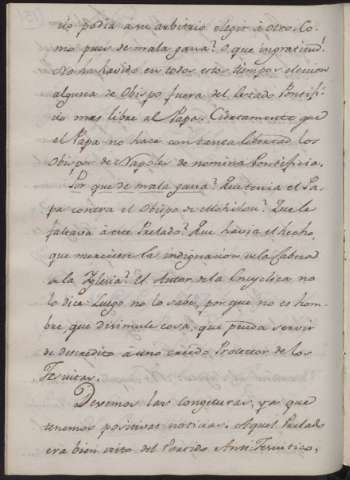 no podia à su arbitrio elegir à otro. Co-
mo pues de mala gana? O que ingratitud!
No ha havido en todos estos tiempos eleccion
alguna de Obispo fuera del Estado Pontifi-
cio mas libre al Papa. Ciertamente que
el Papa no hace con tanta libertad los
Obispos de Napoles de nomina Pontificia.
Por que de mala gana? Que tenia el Pa-
pa contra el Obispo de Mohilow? Que le
faltava à este Prelado? Que havia el hecho,
que mereciese la indignacion de la Cabeza
de la Iglesia? El Autor de la Encyclica no
lo dice: luego no lo sabe, por que no es hom-
bre, que disimule cosa, que pueda servir
de descredito a uno creido Protector de los
Jesuitas.
Dexemos las congeturas, ya que
tenemos positivas noticias. Aquel Prelado
era bien visto del Partido Anti-Jesuitico,